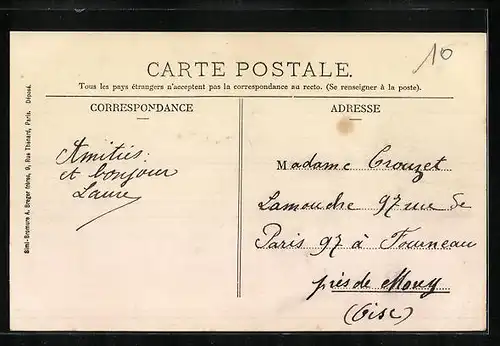 10
CARTE POSTALE.
Tous les pays étrangers n'acceptent pas la correspondance au recto. (Se renseigner à la poste).
CORRESPONDANCE
ADRESSE
Amitiés:
et bonjour
Laure
Madame Crouzet
Lamouche 97 rue de
Paris 97 à Fourneau
près de Mouy
(Oise)
Simi-Bromure A. Breger frères, 9, Rue Thénard, Paris. Déposé.